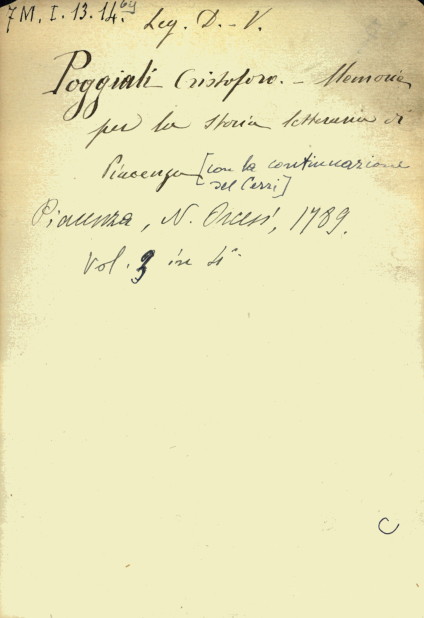 7 M. I. 13. 14. by
Leg. D. - V.
Poggiali Cristoforo. - Memorie
per la storia letteraria di
Piacenza [con la continuazione
del Cerri]
Piacenza, N. Orcesi, 1789.
Vol. 3 in 4°
C